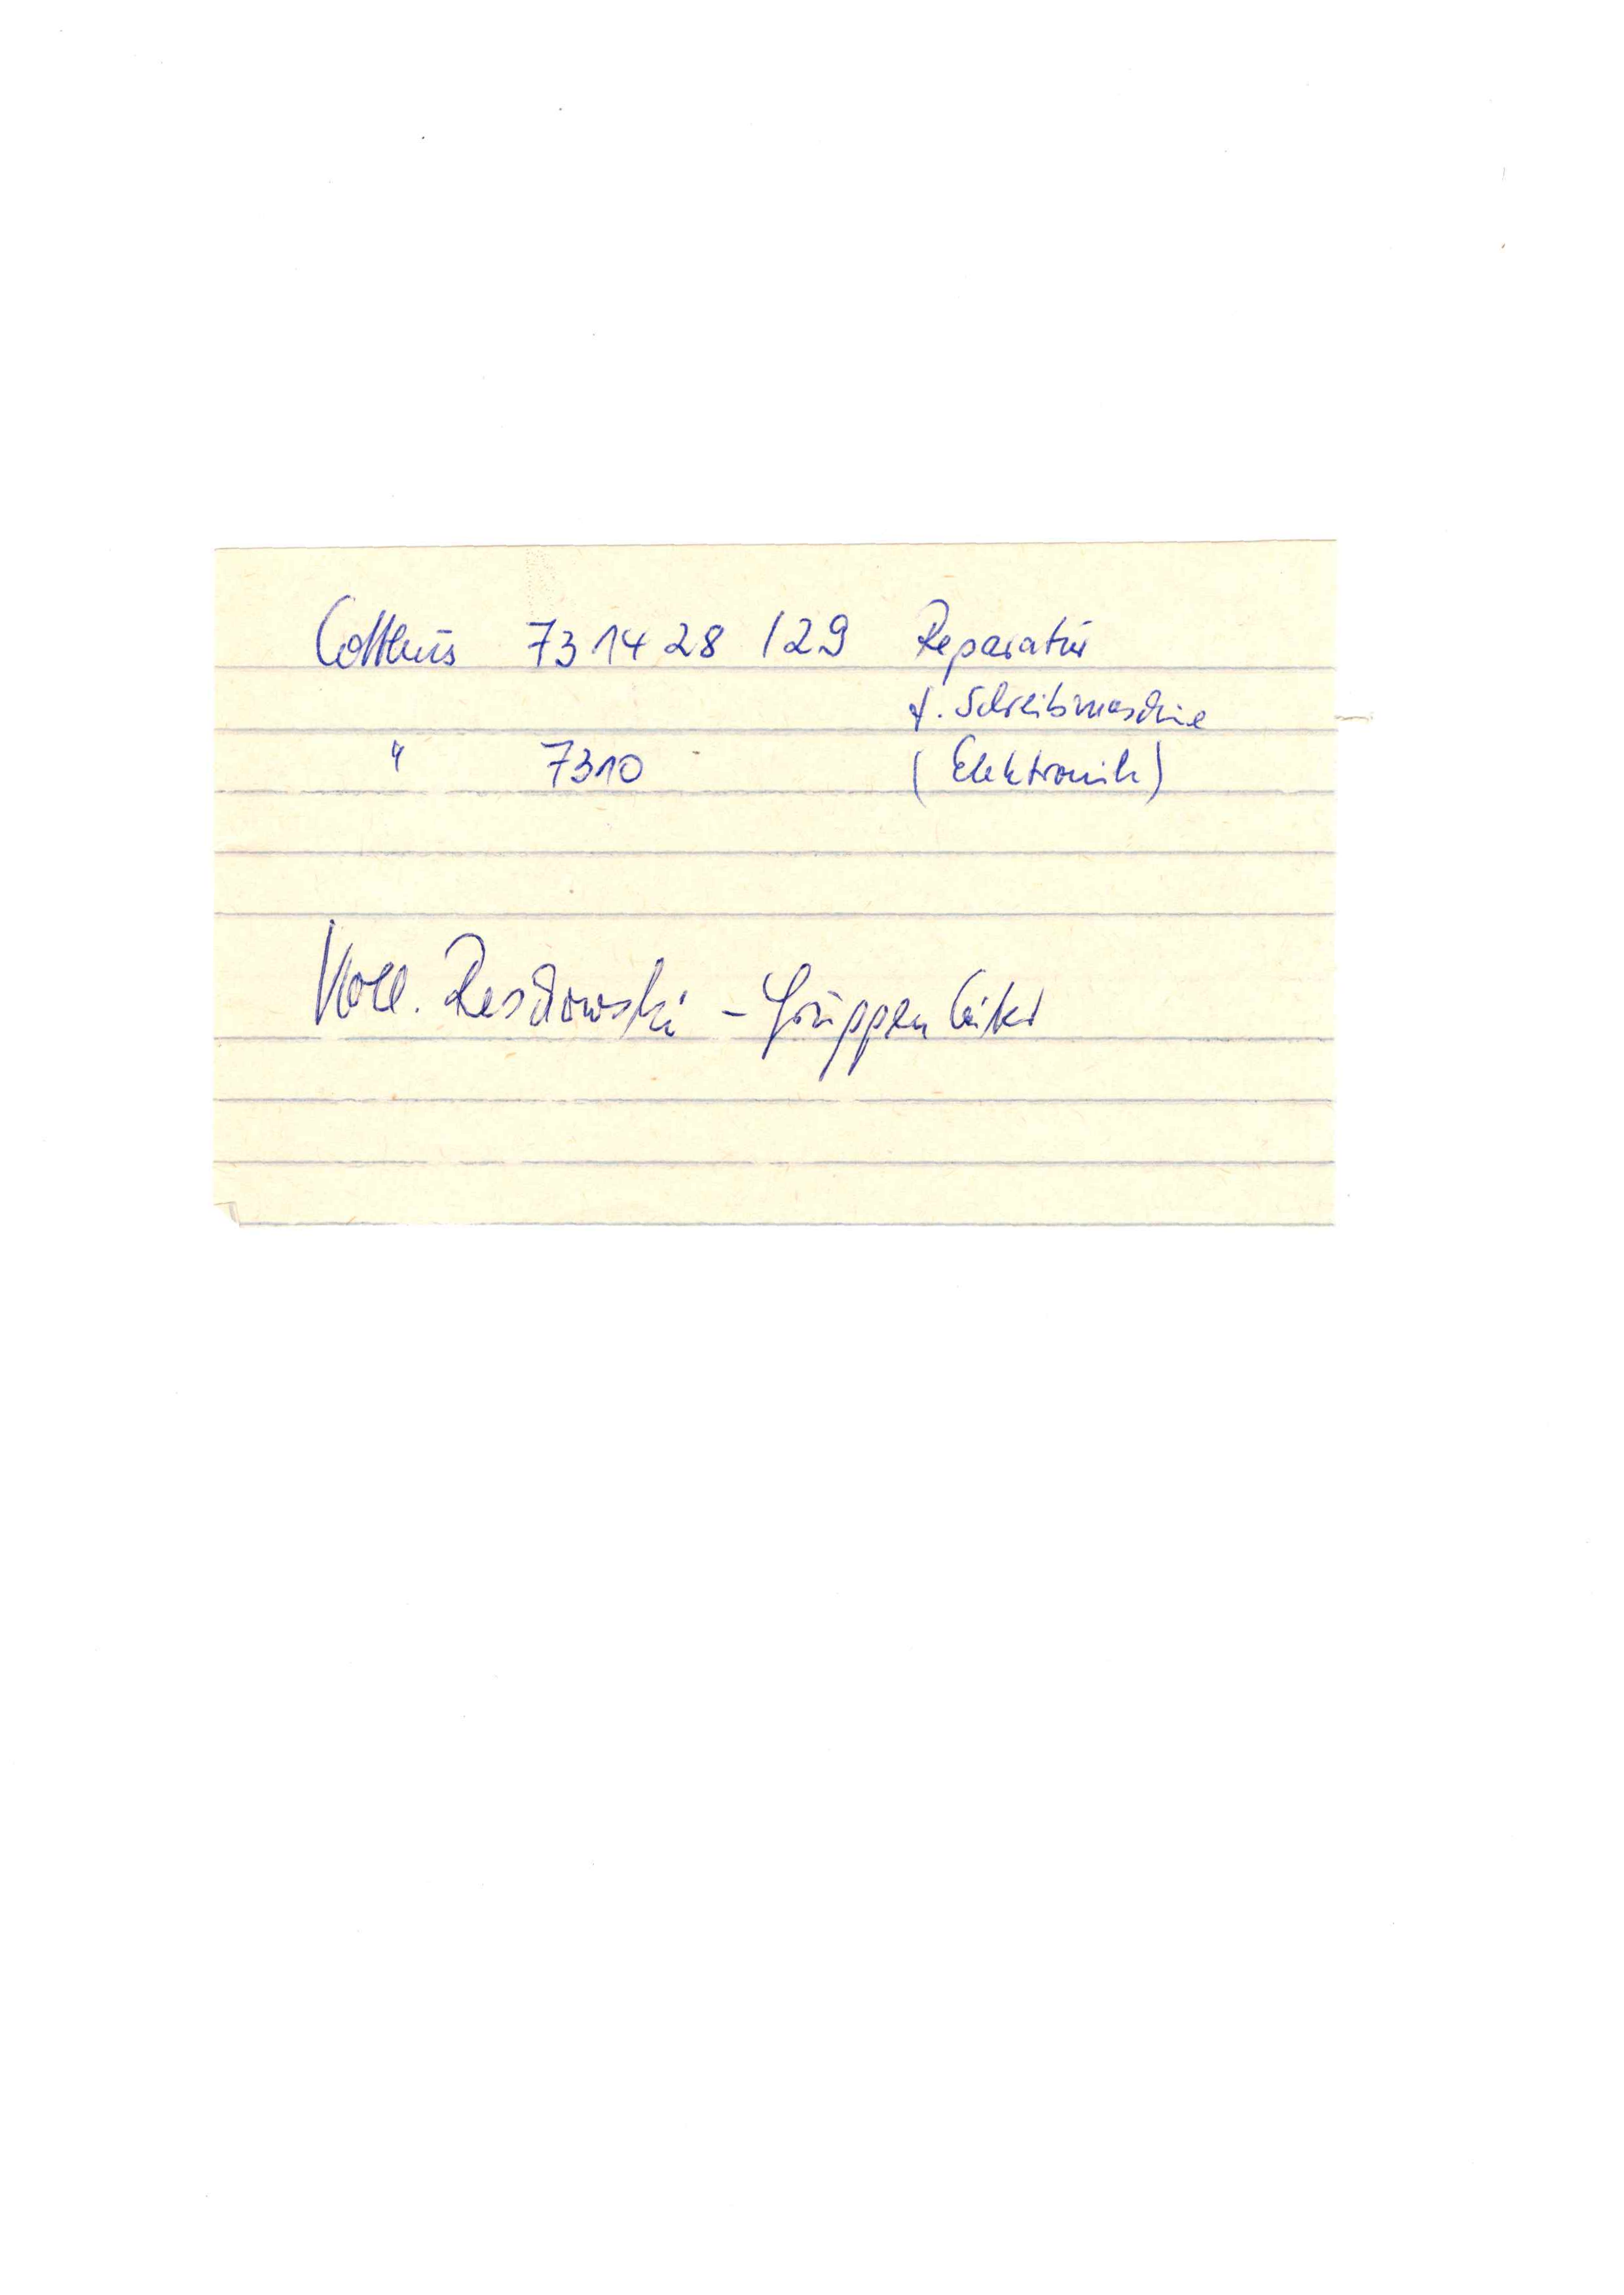 Cottbus 731428 /29 Reparatur
f. Schreibmaschine
" 7310 (Elektronik)
Koll. - Gruppenleiter